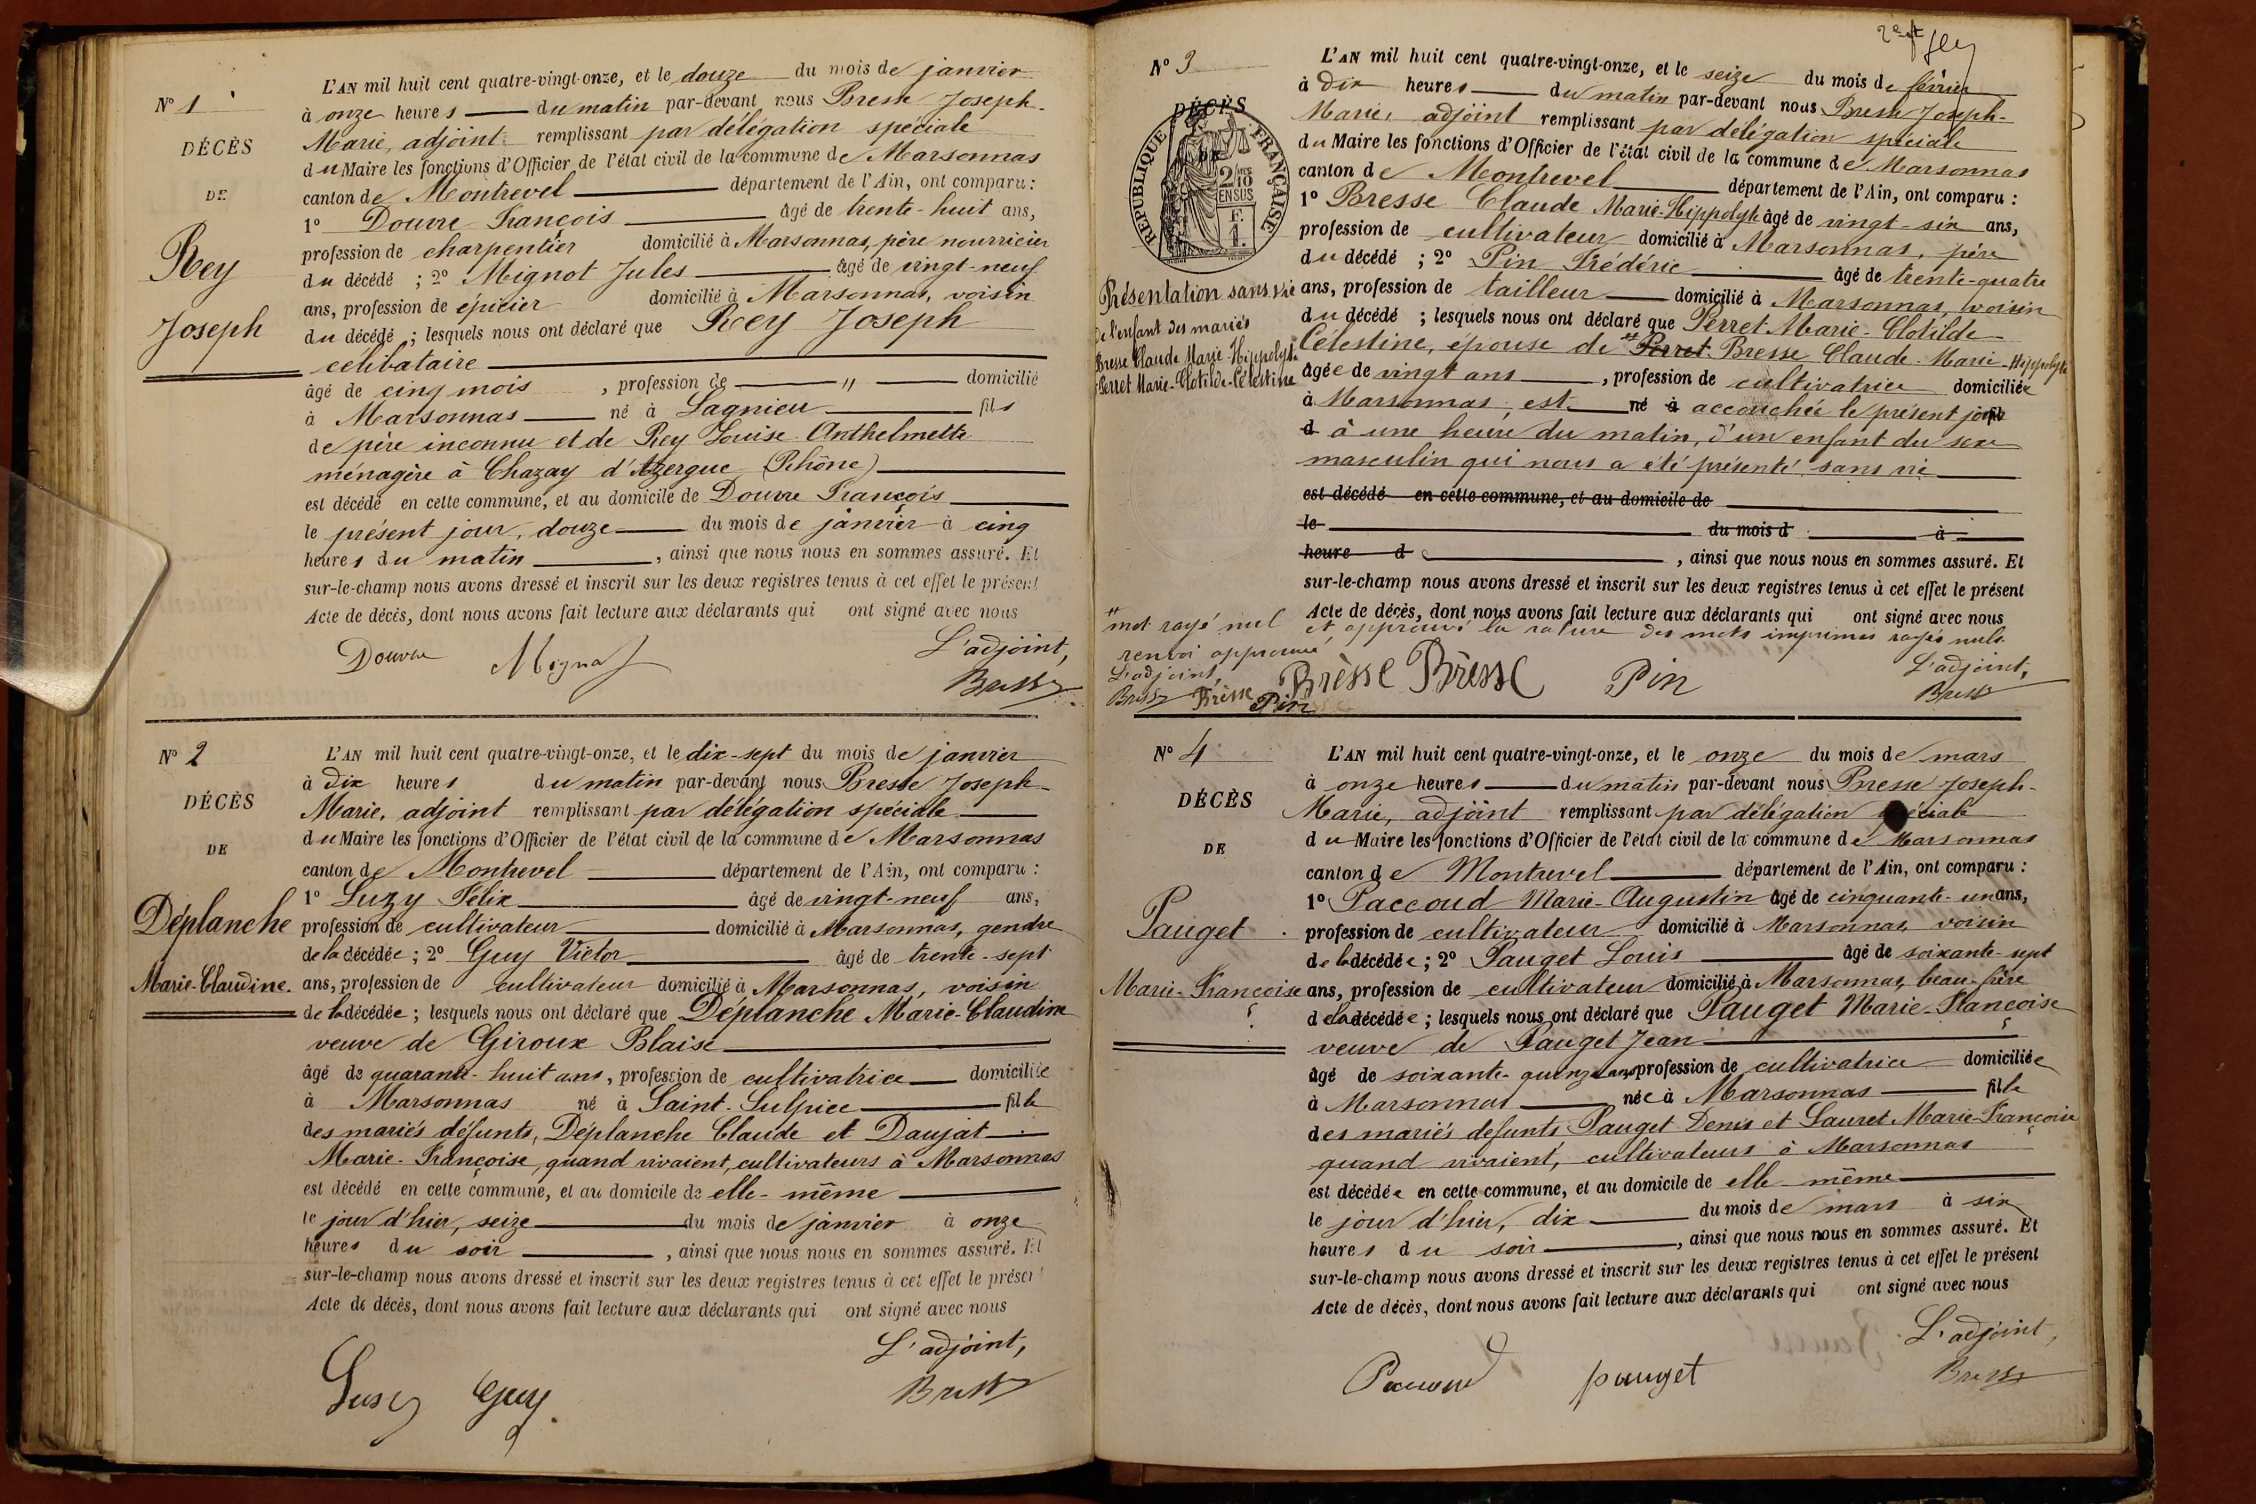 N° 1
DÉCÈS
DE
Rey
Joseph
L'AN mil huit cent quatre-vingt-onze, et le douze du mois de janvier
à onze heures du matin par-devant nous Bresse Joseph-
Marie, adjoint remplissant par délégation spéciale
du Maire les fonctions d'Officier de l'état civil de la commune de Marsonnas
canton de Montrevel département de l'Ain, ont comparu :
1° Douvre François âgé de trente-huit ans,
profession de charpentier domicilié à Marsonnas, père nourricier
du décédé ; 2° Mignot Jules âgé de vingt-neuf
ans, profession de épicier domicilié à Marsonnas, voisin
du décédé ; lesquels nous ont déclaré que Rey Joseph
célibataire
âgé de cinq mois , profession de " domicilié
à Marsonnas né à Lagnieu fils
de père inconnu et de Rey Louise Anthelmette
ménagère à Chazay d'Azergue (Rhône)
est décédé en cette commune, et au domicile de Douvre François
le présent jour, douze du mois de janvier à cinq
heures du matin , ainsi que nous nous en sommes assuré. Et
sur-le-champ nous avons dressé et inscrit sur les deux registres tenus à cet effet le présent
Acte de décès, dont nous avons fait lecture aux déclarants qui ont signé avec nous
L'adjoint,
Douvre Mignot Bresse
N° 2
DÉCÈS
DE
Déplanche
Marie-Claudine.
L'AN mil huit cent quatre-vingt-onze, et le dix-sept du mois de janvier
à dix heures du matin par-devant nous Bresse Joseph-
Marie, adjoint remplissant par délégation spéciale
du Maire les fonctions d'Officier de l'état civil de la commune de Marsonnas
canton de Montrevel département de l'Ain, ont comparu :
1° Luzy Félix âgé de vingt-neuf ans,
profession de cultivateur domicilié à Marsonnas, gendre
de la décédée ; 2° Guy Victor âgé de trente-sept
ans, profession de cultivateur domicilié à Marsonnas, voisin
de la décédée ; lesquels nous ont déclaré que Déplanche Marie-Claudine
veuve de Giroux Blaise
âgé de quarante-huit ans, profession de cultivatrice domiciliée
à Marsonnas né à Saint-Sulpice fille
des mariés défunts, Déplanche Claude et Daujat
Marie-Françoise, quand vivaient, cultivateurs à Marsonnas
est décédé en cette commune, et au domicile de elle-même
le jour d'hier, seize du mois de janvier à onze
heures du soir , ainsi que nous nous en sommes assuré. Et
sur-le-champ nous avons dressé et inscrit sur les deux registres tenus à cet effet le présent
Acte de décès, dont nous avons fait lecture aux déclarants qui ont signé avec nous
L'adjoint,
Luzy Guy Bresse
N° 3
DÉCÈS
DE
RÉPUBLIQUE FRANÇAISE
2/10 EN SUS
Présentation sans vie
de l'enfant des mariés
Bresse Claude-Marie-Hippolyte
et Perret Marie-Clotilde-Célestine
L'AN mil huit cent quatre-vingt-onze, et le seize du mois de février
à dix heures du matin par-devant nous Bresse Joseph-
Marie, adjoint remplissant par délégation spéciale
du Maire les fonctions d'Officier de l'état civil de la commune de Marsonnas
canton de Montrevel département de l'Ain, ont comparu :
1° Bresse Claude Marie-Hippolyte âgé de vingt-six ans,
profession de cultivateur domicilié à Marsonnas, père
du décédé ; 2° Pin Frédéric âgé de trente-quatre
ans, profession de tailleur domicilié à Marsonnas, voisin
du décédé ; lesquels nous ont déclaré que Perret Marie-Clotilde
Célestine, épouse de Perret Bresse Claude-Marie-Hippolyte
âgée de vingt ans , profession de cultivatrice domiciliée
à Marsonnas, est né à accouchée le présent jour fil
d à une heure du matin, d'un enfant du sexe
masculin qui nous a été présenté sans vie
est décédé en cette commune, et au domicile de
le du mois d à
heure d , ainsi que nous nous en sommes assuré. Et
sur-le-champ nous avons dressé et inscrit sur les deux registres tenus à cet effet le présent
Acte de décès, dont nous avons fait lecture aux déclarants qui ont signé avec nous
mot rayé nul et approuvé la rature des mots imprimés rayés nuls
renvoi approuvé
L'adjoint, L'adjoint,
Bresse Brèsse Pin Brèsse Brèsse Pin Bresse
N° 4
DÉCÈS
DE
Pauget
Marie-Françoise
L'AN mil huit cent quatre-vingt-onze, et le onze du mois de mars
à onze heures du matin par-devant nous Bresse Joseph-
Marie, adjoint remplissant par délégation spéciale
du Maire les fonctions d'Officier de l'état civil de la commune de Marsonnas
canton de Montrevel département de l'Ain, ont comparu :
1° Paccoud Marie-Augustin âgé de cinquante-un ans,
profession de cultivateur domicilié à Marsonnas, voisin
de la décédée ; 2° Pauget Louis âgé de soixante-sept
ans, profession de cultivateur domicilié à Marsonnas, beau-frère
de la décédée ; lesquels nous ont déclaré que Pauget Marie-Françoise
veuve de Pauget Jean
âgé de soixante-quinze ans profession de cultivatrice domiciliée
à Marsonnas née à Marsonnas fille
des mariés défunts Pauget Denis et Lauret Marie-Françoise
quand vivaient, cultivateurs à Marsonnas
est décédée en cette commune, et au domicile de elle-même
le jour d'hier, dix du mois de mars à six
heures du soir , ainsi que nous nous en sommes assuré. Et
sur-le-champ nous avons dressé et inscrit sur les deux registres tenus à cet effet le présent
Acte de décès, dont nous avons fait lecture aux déclarants qui ont signé avec nous
L'adjoint,
Paccoud pauget Bresse